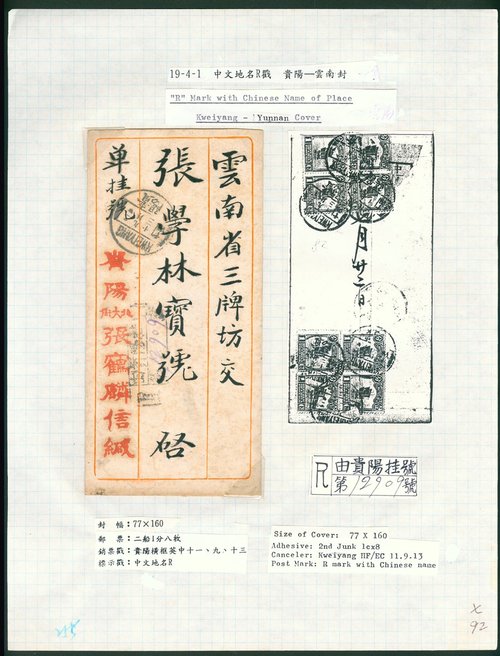 19-4-1 中文地名R戳 貴陽—雲南封
"R" Mark with Chinese Name of Place
Kweiyang - Yunnan Cover
雲南省三牌坊交
張學林寶號 啓
单挂號
貴陽
北大街
張鶴麟信緘
月廿二日
R
由貴陽挂號
第12909號
封 幅：77×160
郵 票：二船1分八枚
銷票戳：貴陽橫框英中十一、九、十三
標示戳：中文地名R
Size of Cover: 77 X 160
Adhesive: 2nd Junk 1cx8
Canceler: Kweiyang HF/EC 11.9.13
Post Mark: R mark with Chinese name
X
92